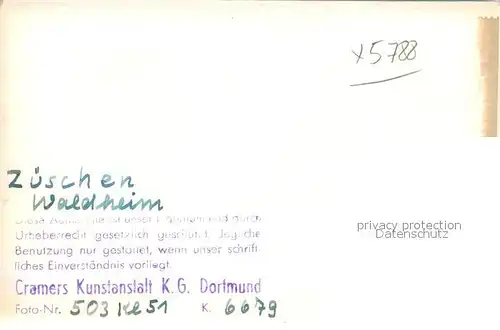 x5788
Züschen
Waldheim
Diese Aufnahme ist unser Eigentum und durch
Urheberrecht gesetzlich geschützt. Jegliche
Benutzung nur gestattet, wenn unser schrift-
liches Einverständnis vorliegt.
privacy protection
Datenschutz
Cramers Kunstanstalt K. G. Dortmund
Foto-Nr. 503 Kl 51 K. 6679